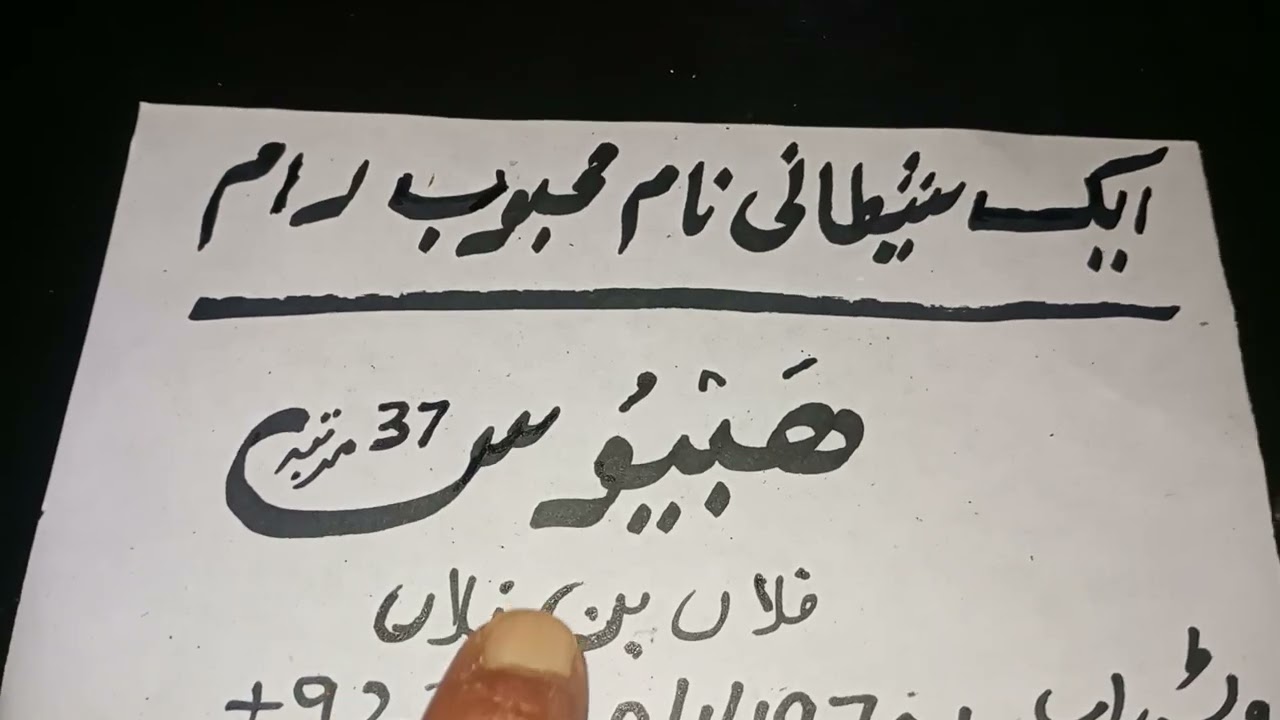 ایک شیطانی نام محبوب رام
هَبْیوُس 37 مرتبہ
فلاں بن فلاں
+92